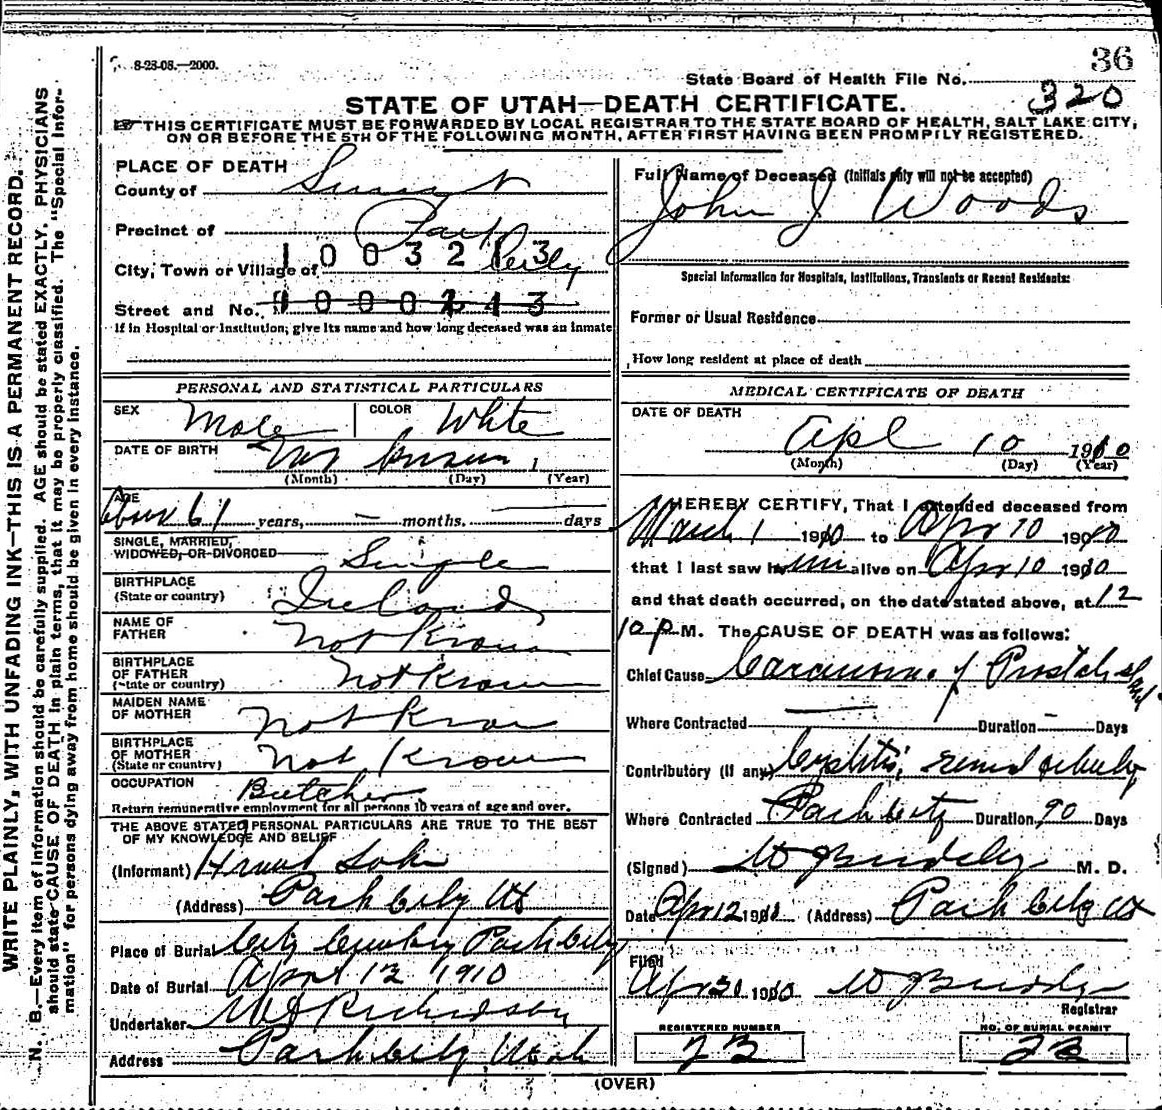 36
8-23-08.—2000.
State Board of Health File No. 320
STATE OF UTAH—DEATH CERTIFICATE.
THIS CERTIFICATE MUST BE FORWARDED BY LOCAL REGISTRAR TO THE STATE BOARD OF HEALTH, SALT LAKE CITY,
ON OR BEFORE THE 5TH OF THE FOLLOWING MONTH, AFTER FIRST HAVING BEEN PROMPTLY REGISTERED.
WRITE PLAINLY, WITH UNFADING INK—THIS IS A PERMANENT RECORD.
N. B.—Every item of information should be carefully supplied. AGE should be stated EXACTLY. PHYSICIANS
should state CAUSE OF DEATH in plain terms, that it may be properly classified. The "Special Infor-
mation" for persons dying away from home should be given in every instance.
PLACE OF DEATH
County of Summit
Precinct of Park
City, Town or Village of City
1003213
Street and No.
10000243
If in Hospital or Institution, give its name and how long deceased was an inmate
PERSONAL AND STATISTICAL PARTICULARS
SEX Male COLOR White
DATE OF BIRTH Not known 1
(Month) (Day) (Year)
AGE About 61 years, — months. — days
SINGLE, MARRIED,
WIDOWED, OR DIVORCED Single
BIRTHPLACE
(State or country) Ireland
NAME OF
FATHER Not Known
BIRTHPLACE
OF FATHER
(State or country) Not Known
MAIDEN NAME
OF MOTHER Not Known
BIRTHPLACE
OF MOTHER
(State or country) Not Known
OCCUPATION Butcher
Return remunerative employment for all persons 10 years of age and over.
THE ABOVE STATED PERSONAL PARTICULARS ARE TRUE TO THE BEST
OF MY KNOWLEDGE AND BELIEF
(Informant)
(Address) Park City Ut
Place of Burial City Cemetery Park City
Date of Burial April 12 1910
Undertaker Richardson
Address Park City Utah
Full Name of Deceased (Initials only will not be accepted)
John J Woods
Special Information for Hospitals, Institutions, Transients or Recent Residents:
Former or Usual Residence
How long resident at place of death
MEDICAL CERTIFICATE OF DEATH
DATE OF DEATH
Apl 10 1910
(Month) (Day) (Year)
I HEREBY CERTIFY, That I attended deceased from
March 1 1910 to Apr 10 1910
that I last saw him alive on Apr 10 1910
and that death occurred, on the date stated above, at 12
10 P M. The CAUSE OF DEATH was as follows:
Chief Cause Carcinoma of Prostate
Where Contracted — Duration — Days
Contributory (if any) Cystitis,
Where Contracted Park City Duration 90 Days
(Signed) M. D.
Date Apr 12 1910 (Address) Park City Ut
Filed
Apr 30 1910
Registrar
REGISTERED NUMBER
23
NO. OF BURIAL PERMIT
23
(OVER)